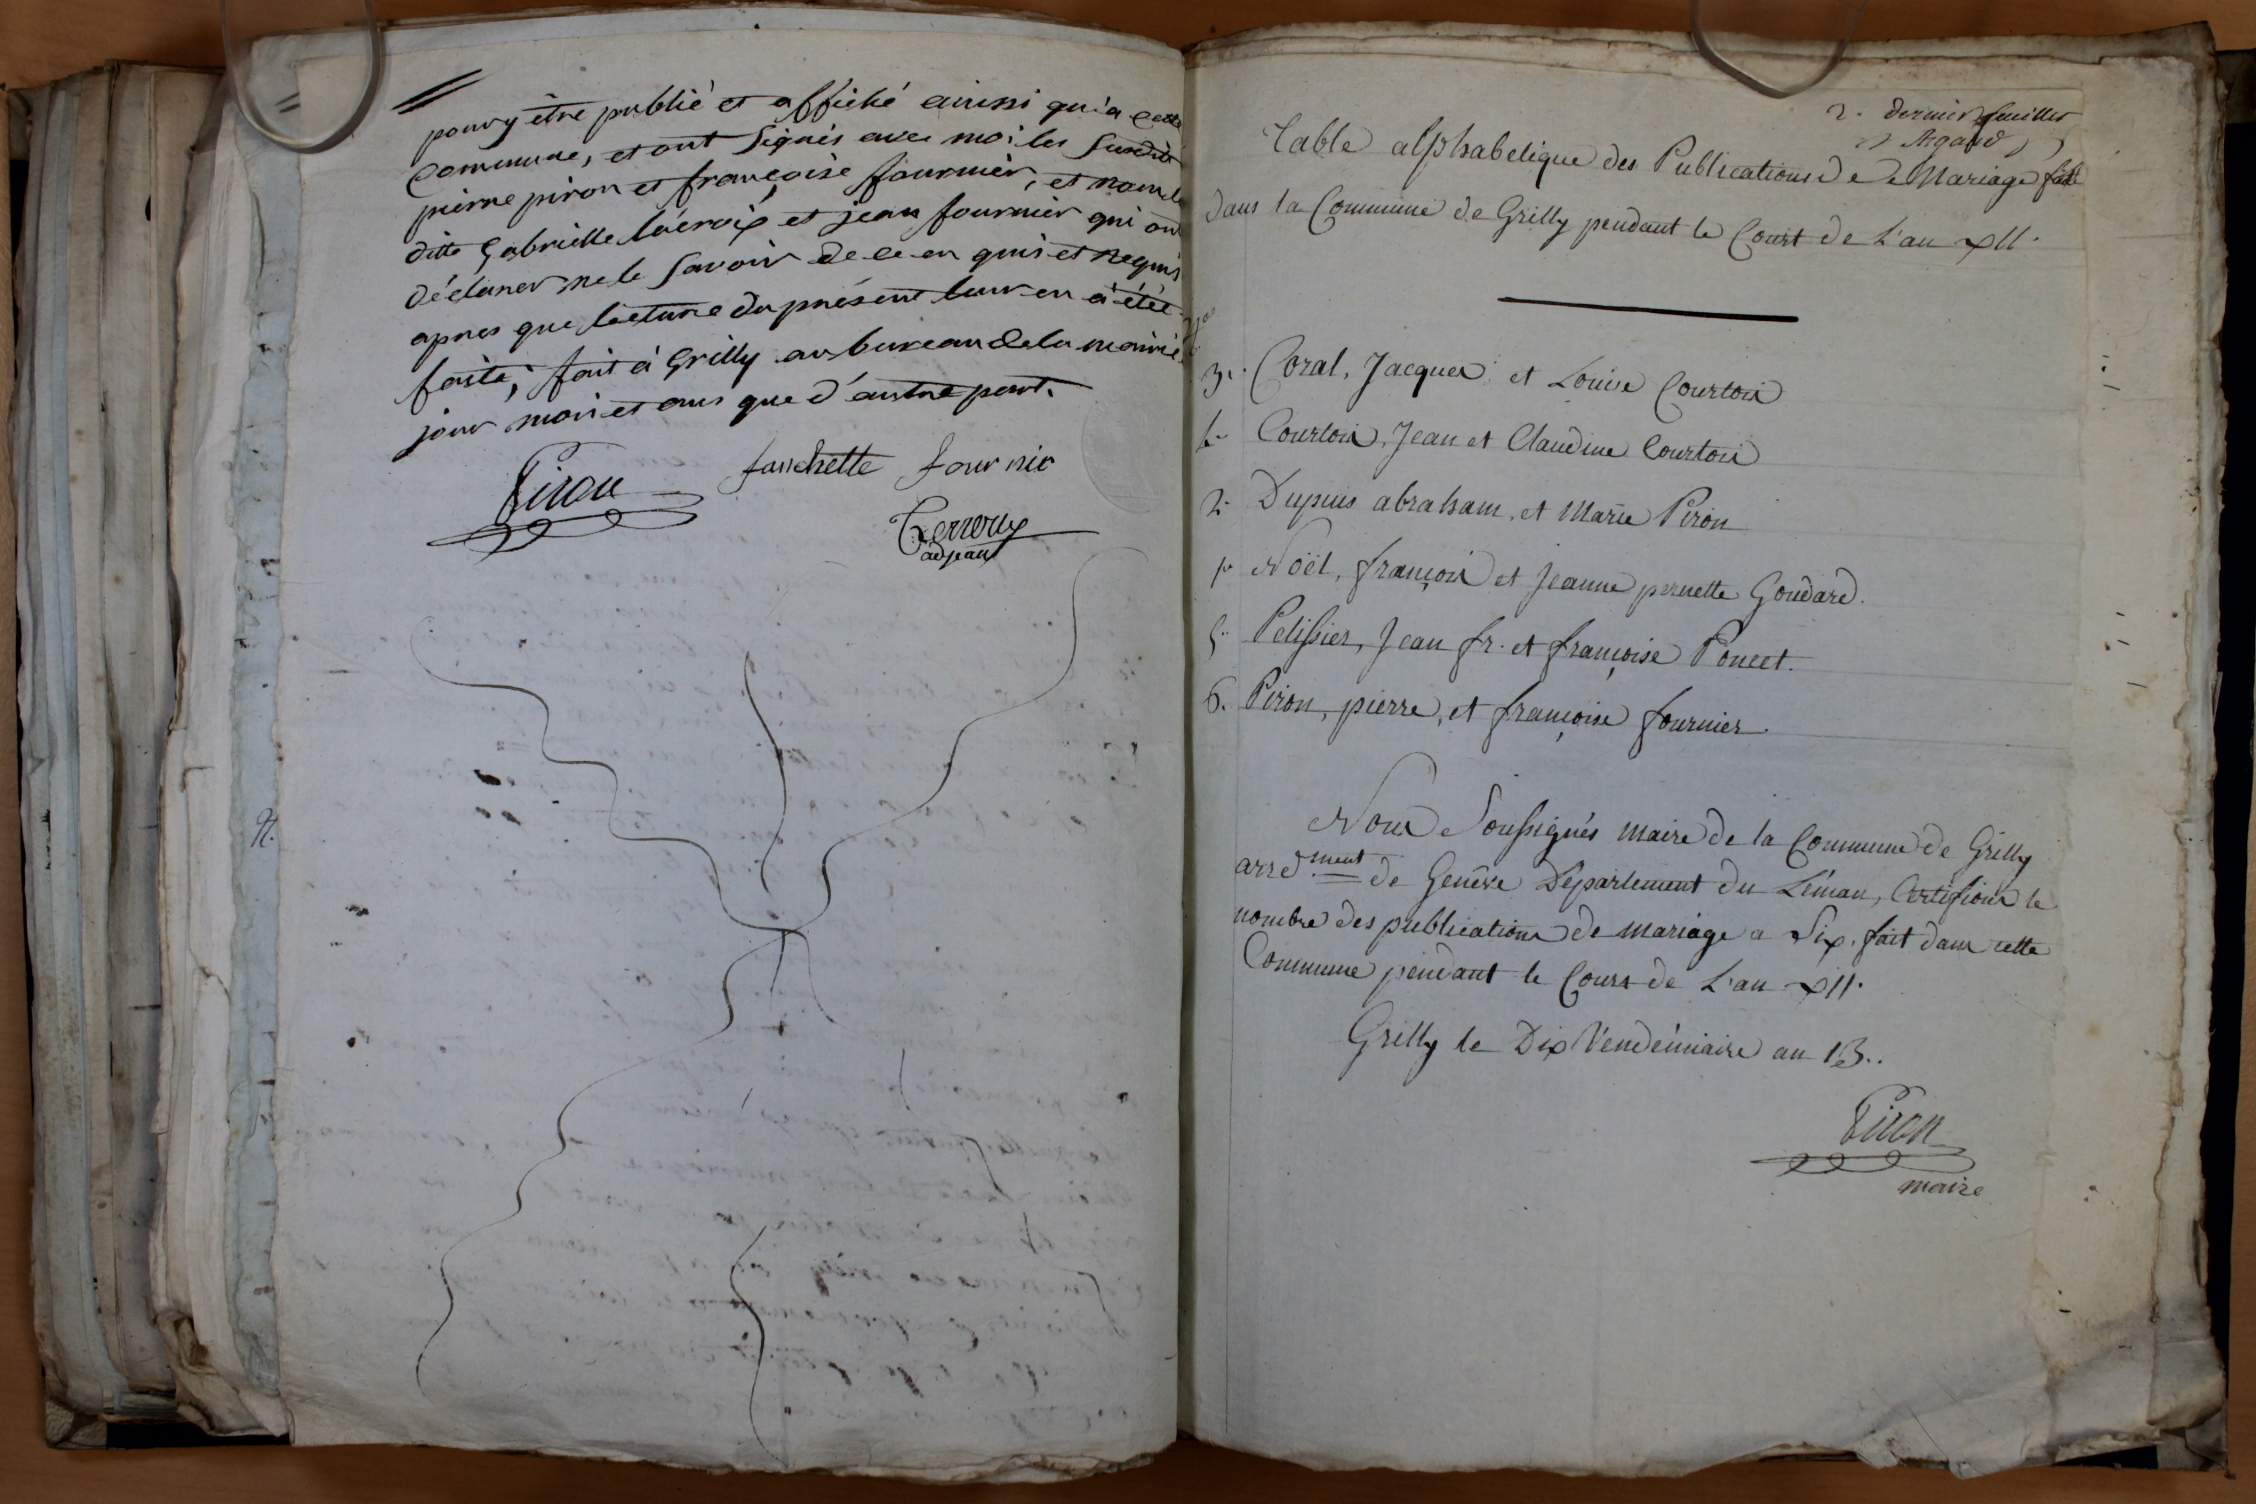 pour y être publié et affiché ainssi qu'a cette
Commune, et ont signés avec moi les susdits
pierre piron et françoise fournier, et nom la
ditte Gabrielle lacroix et jean fournier qui ont
déclarer ne le savoir de ce en quis et requis
apres que lecture du présent leur en a étée
faite; fait à Grilly au bureau de la mairie
jour mois et ans que d'autre part.
Piron fanchette fournie
Terroux
adjoint
2. dernier feuillet
Argand
Table alphabetique des Publications de Mariage fait
dans la Commune de Grilly pendant le Court de L'an XII.
3. Coral, Jacques et Louise Courtois
4. Courtois, Jean et Claudine Courtois
2. Dupuis abraham, et Marie Piron
1. Noël, françois et Jeanne pernette Goudard.
5. Pelissier, Jean fr. et françoise Poncet.
6. Piron, pierre, et françoise fournier.
Nous Soussignés maire de la Commune de Grilly
arrd.ment de Genêve Département du Léman, Certifions le
nombre des publications de mariage a Six, fait dans cette
Commune pendant le Cours de L'an XII.
Grilly le Dix Vendémiaire an 13..
Piron
maire